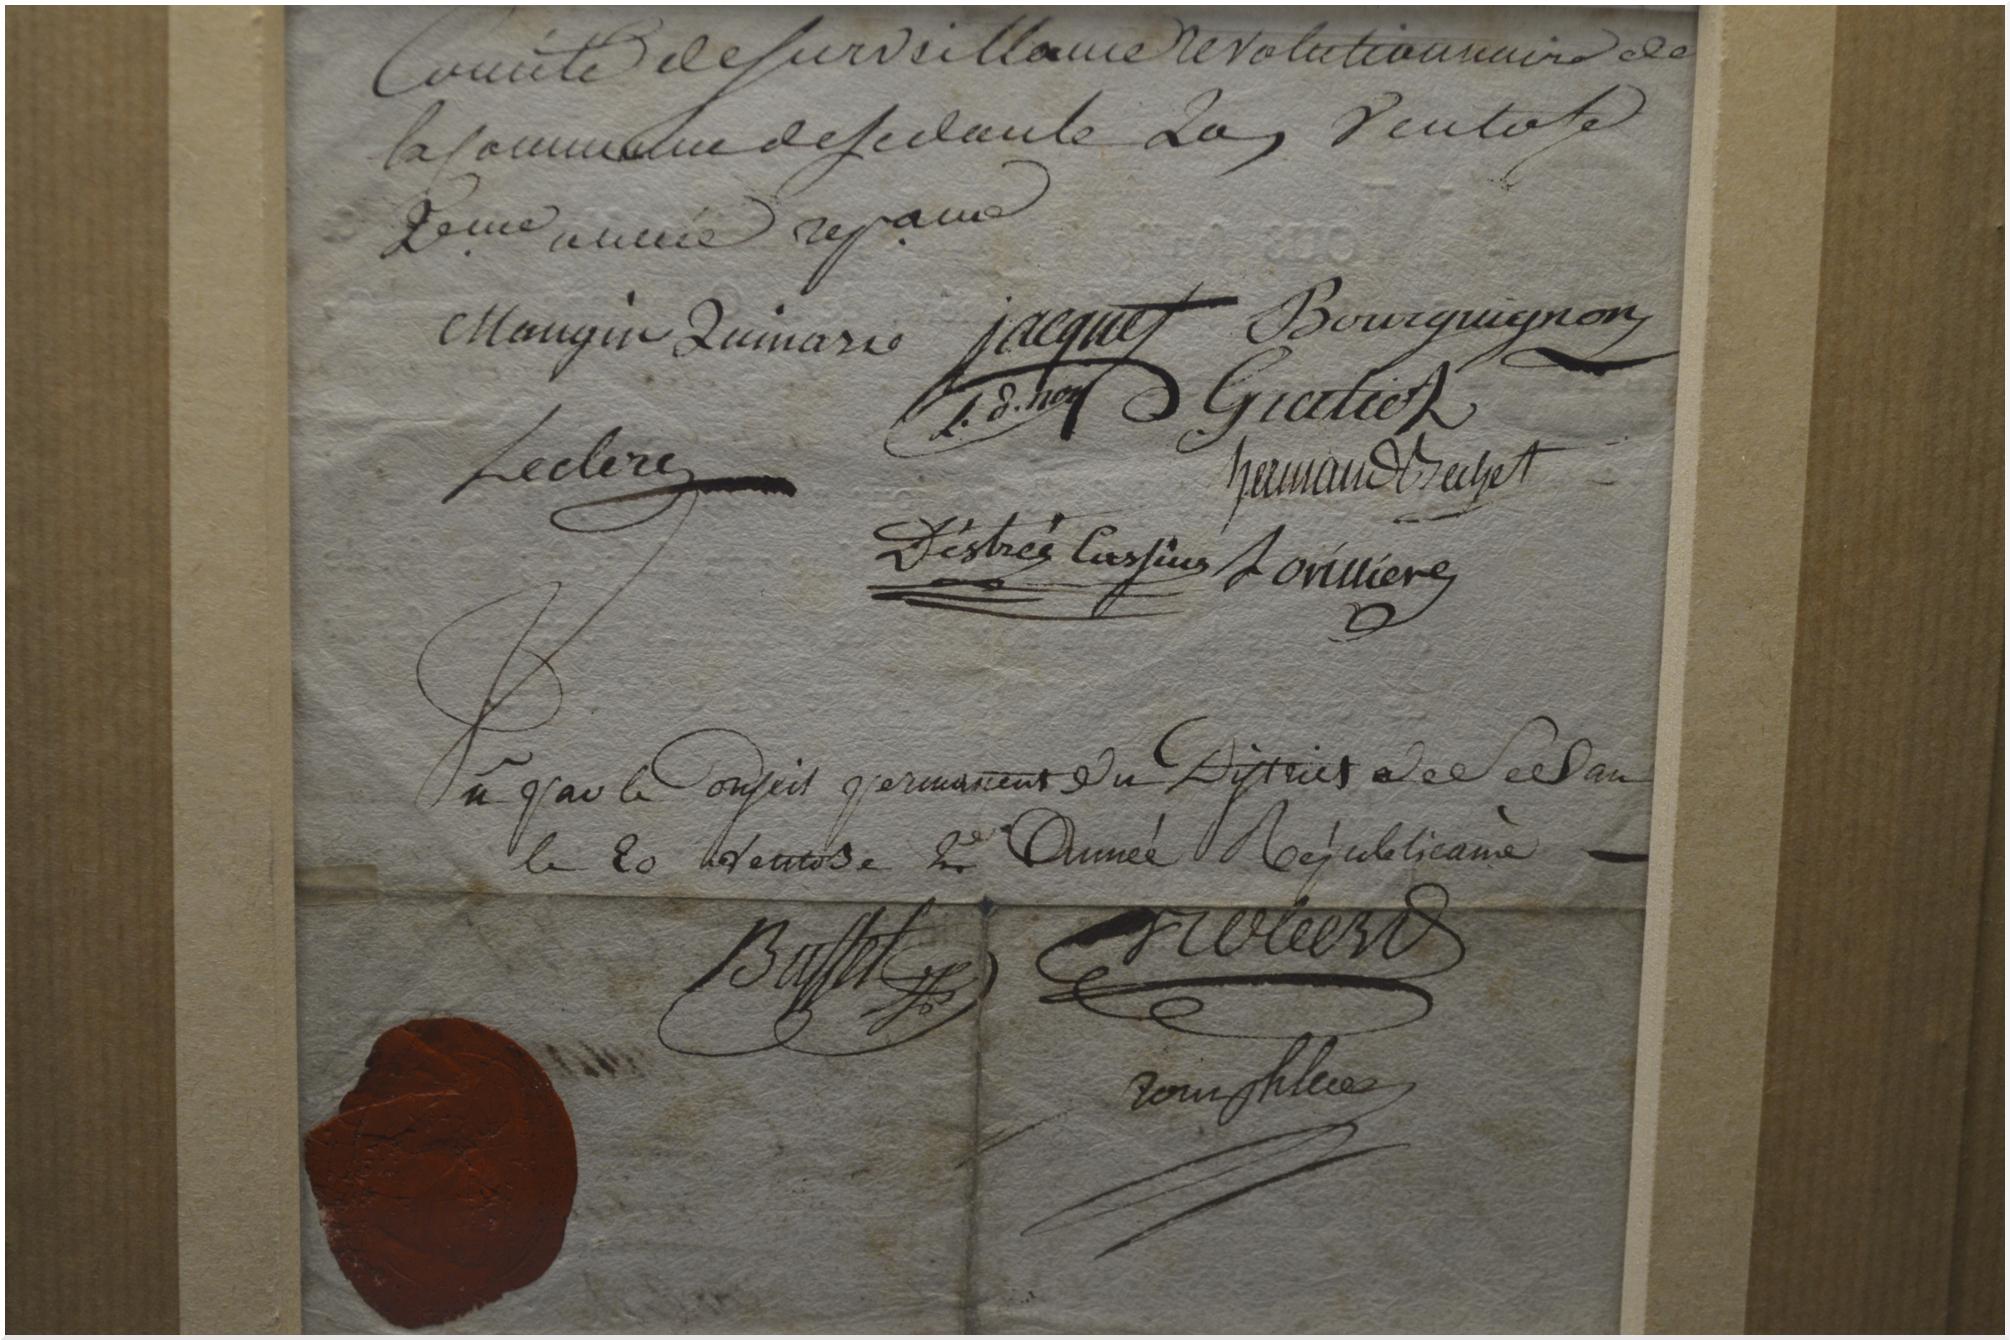 Comité de Surveillance revolutionnaire de
la Commune de sedan le 20 Ventose
2eme année repame
Mangin Quimarie Jacquet Bourguignon
1. d. nom Gratiot
Leclerc hermand Bechet
Déstréé Cassius Lorilliere
Vu par le Conseil permanent du District de Sedan
le 20 ventose 2e Année Républicaine
Buffet